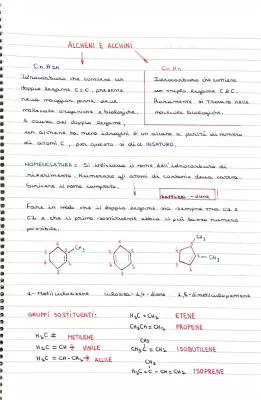 ALCHENI E ALCHINI
CnH2n
CnHn
Idrocarburo che contiene un
doppio legame C=C, presente
nella maggior parte delle
molecole organiche e biologiche.
A causa del doppio legame,
Idrocarburo che contiene
un triplo legame C≡C.
Raramente si trovano nelle
molecole biologiche.
un alchene ha meno idrogeni di un alcano a parità di numero
di atomi C, per questo si dice INSATURO.
NOMENCLATURA: Si individua il nome dell'idrocarburo di
riferimento. Numerare gli atomi di carbonio della catena.
Scrivere il nome completo.
- diene
Fare in modo che il doppio legame sia sempre tra C1 e
C2 e che il primo sostituente abbia il più basso numero
possibile.
CH3
CH3
CH3
1-Metilcicloesene
cicloesa-1,4-diene
1,5-dimetilciclopentene
GRUPPI SOSTITUENTI:
H2C=CH2 ETENE
CH3CH=CH2 PROPENE
H2C METILENE
H2C=CH VINILE
H2C=CH-CH2 ALLILE
CH3
CH3C=CH2 ISOBUTILENE
CH3
H2C=C-CH=CH2 ISOPRENE